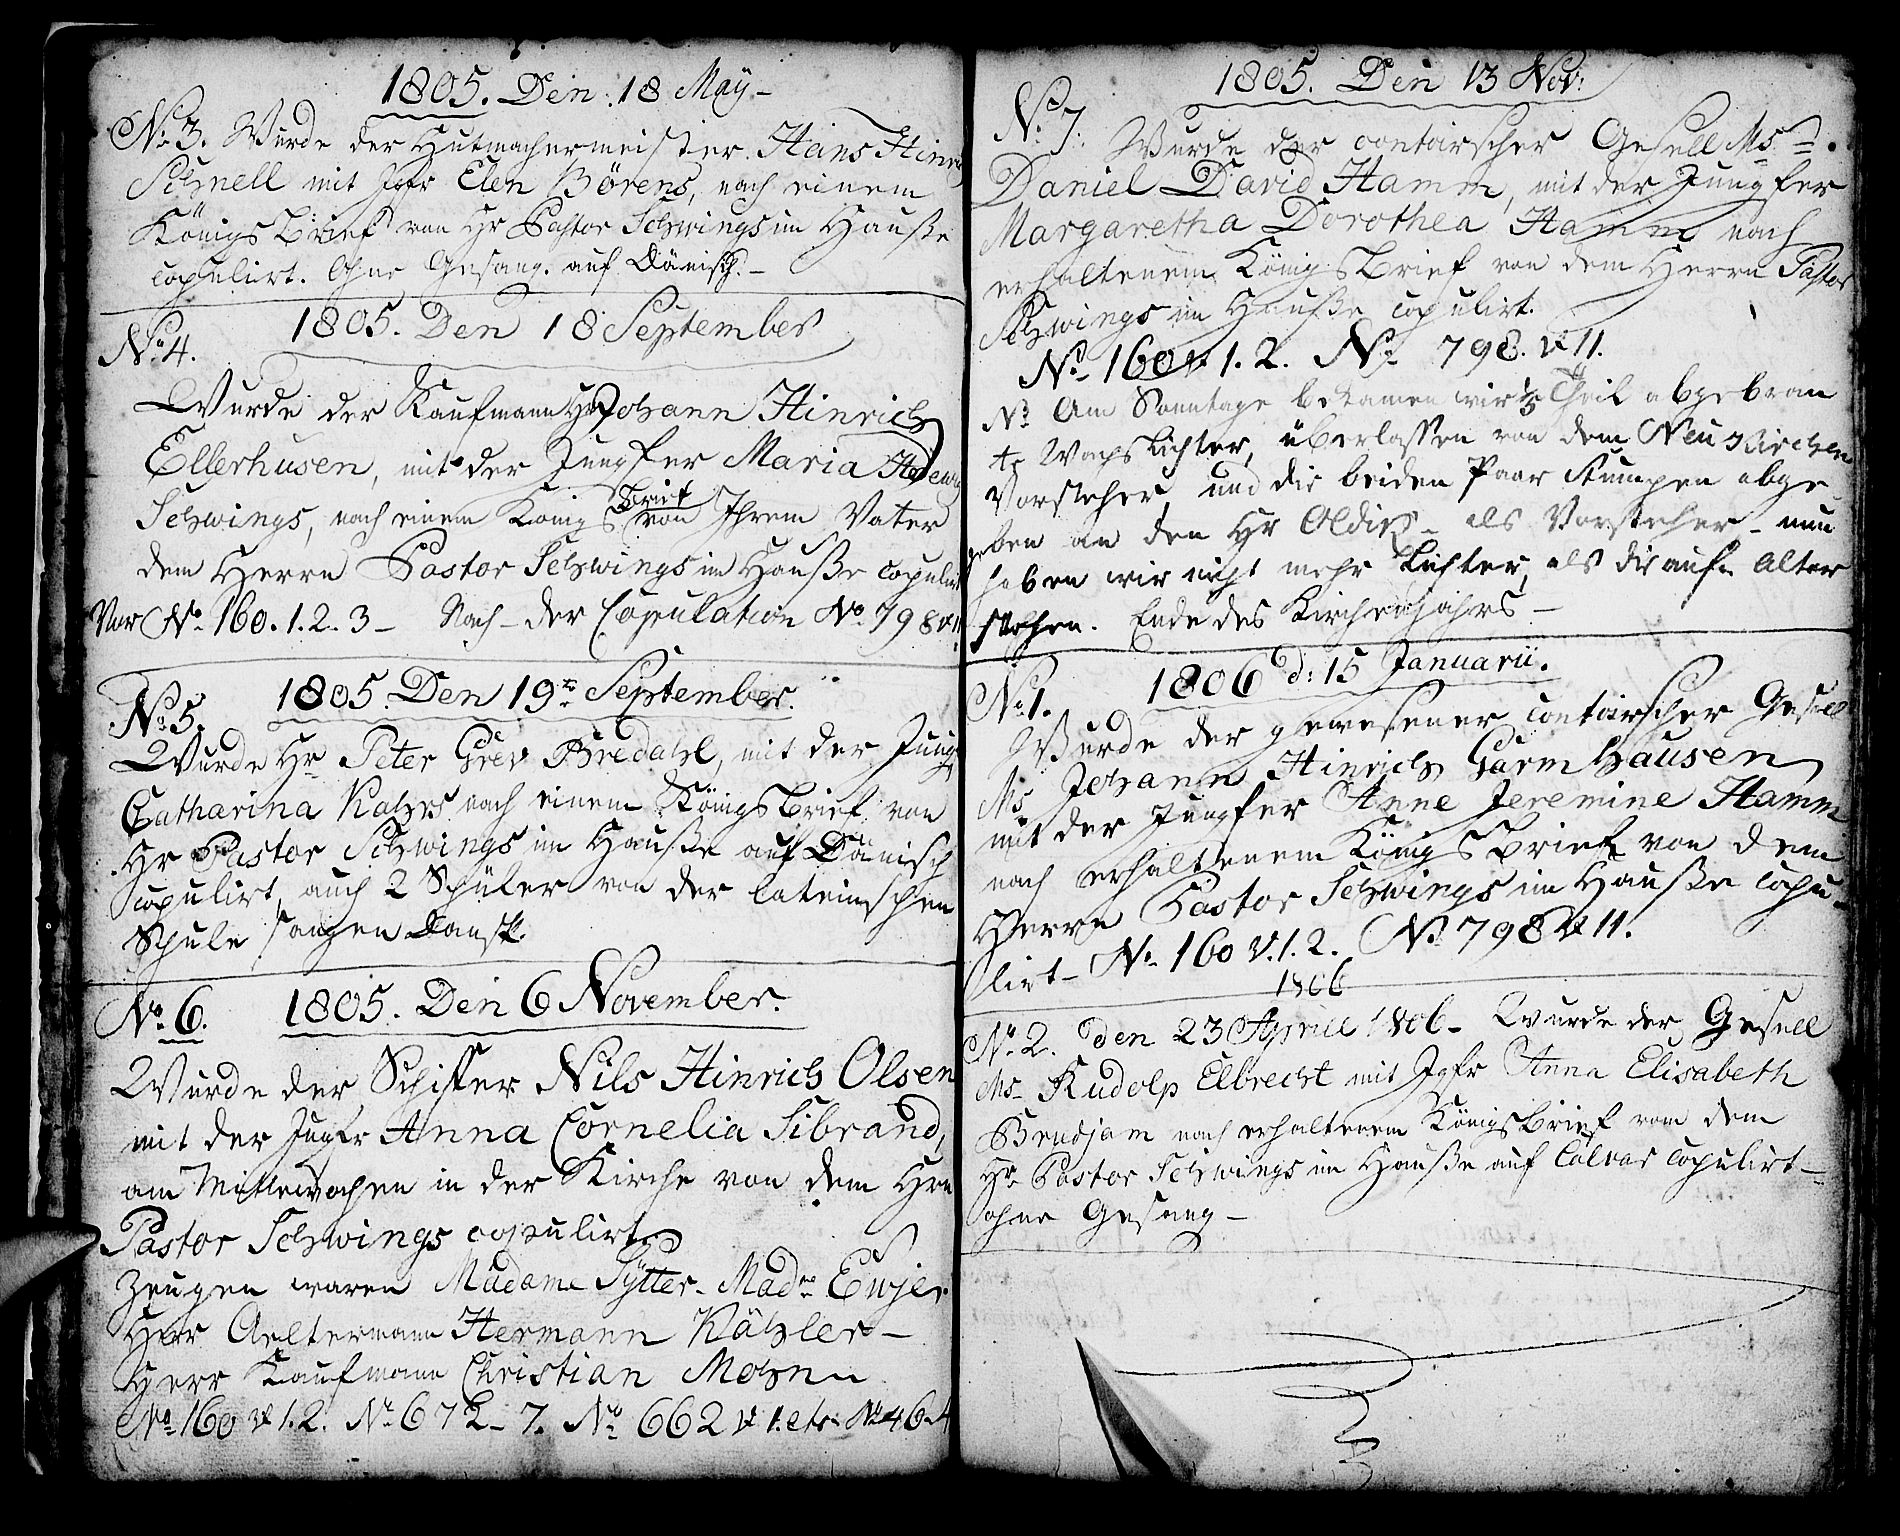 1805. Den 18 Maÿ -
No 3. Wurde der Hutmachermeister Hans Hinri
Schnell mit Jgfr Elen Børens, nach einem
Königs Brief von Hr Pastor Schwings im Hauße
copulirt. Ohne Gesang. auf Dänisch. -
1805. Den 18 September
No 4.
Wurde der Kaufmann Hr Johann Hinrich
Ellerhusen, mit der Jungfer Maria Hedewig
Schwings, nach einem Königs Brief von Ihrem Vater
dem Herrn Pastor Schwings im Hauße copulirt
Vor No 160. 1. 2. 3 - Nach - der Copulation No 798 v 11
1805. Den 19te September.
No 5.
Wurde Hr Peter Grev Bredahl, mit der Jungf
Catharina Kahrs nach einem Königs Brief von
Hr Pastor Schwings im Hauße auf Dänisch
copulirt, auch 2 Schüler von der lateinschen
Schule sangen Dansk.
No 6. 1805. Den 6 November.
Wurde der Schiffer Nils Hinrich Olsen
mit der Jugfr Anna Cornelia Sibrand,
am Mittewochen in der Kirche von dem Hrn
Pastor Schwings copulirt
Zeugen waren Madame Sÿtter - Madme Ewjer
Herr Aeltermann Hermann Kähler -
Herr Kaufmann Christian Mohn
No 160 v 1. 2. No 672 - 7. No 662 v 1. etc No 464
1805. Den 13 Nov:
No 7. Wurde der contoirscher Gesell Ms -
Daniel David Hamm, mit der Jungfer
Margaretha Dorothea Hamm nach
erhaltenem Königs Brief von dem Herrn Pastor
Schwings im Hauße copulirt.
No 160 v 1. 2. No 798. v 11.
NB Am Sonntage bekamen wir 1/3 Theil abgebran
te Wachslichter, überlassen von dem Neu Kirchen
Vorsteher, und die beiden Paar Stumpen abge
geben an den Hr Oldiss - als Vorsteher - nun
haben wir nicht mehr Lichter, als die aufn Altar
stehen. Ende des Kirchenjahrs -
1806 d: 15 Januarii.
No 1.
Wurde der gewesener contoirscher Gesell
Ms Johann Hinrich Garmhausen
mit der Jungfer Anne Jeremine Hamm
nach erhaltenem Königs Brief von dem
Herrn Pastor Schwings im Hauße copu-
lirt - No 160 v. 1. 2. No 798 v 11.
1806
No 2. den 23 Aprill 1806 - Wurde der Gesell
Ms - Rudolp Elbrecht mit Jgfr Anna Elisabeth
Brudjam nach erhaltenem Königs Brief von dem
Hr Pastor Schwings im Hauße auf Calvar copulirt -
ohne Gesang -